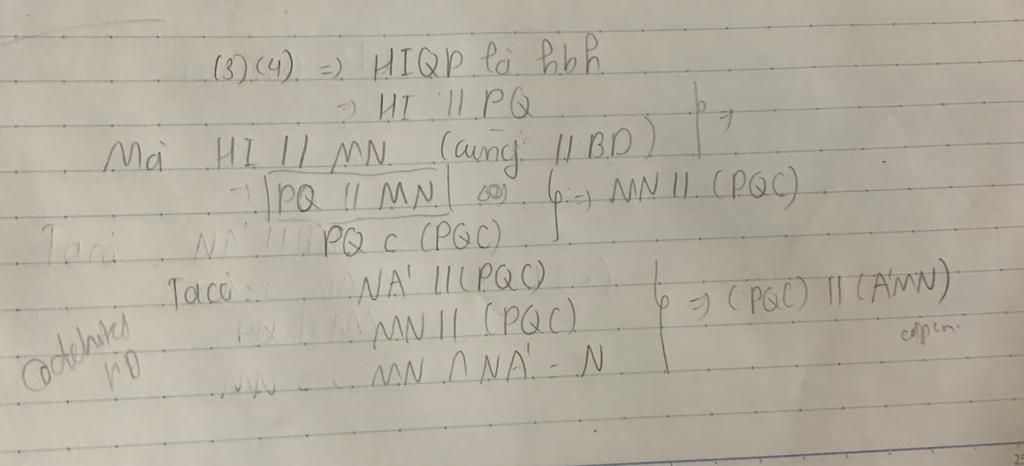 (3).(4). => HIQP là hbh
=> HI // PQ
Mà HI // MN (cùng // BD) } =>
=> PQ // MN (10) } => MN // (PQC)
Ta có PQ ⊂ (PQC)
Ta có: NA' // (PQC)
MN // (PQC) } => (PQC) // (A'MN)
MN ∩ NA' = N đpcm.